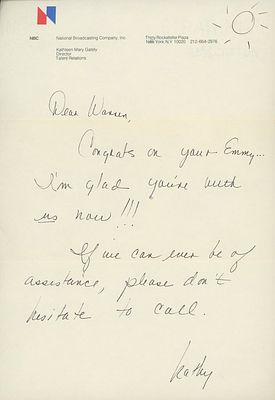 NBC
National Broadcasting Company, Inc.
Thirty Rockefeller Plaza
New York, N.Y. 10020 212-664-2976
Kathleen Mary Gately
Director
Talent Relations
Dear Warren,
Congrats on your Emmy...
I'm glad you're with
us now!!!
If we can ever be of
assistance, please don't
hesitate to call.
Kathy